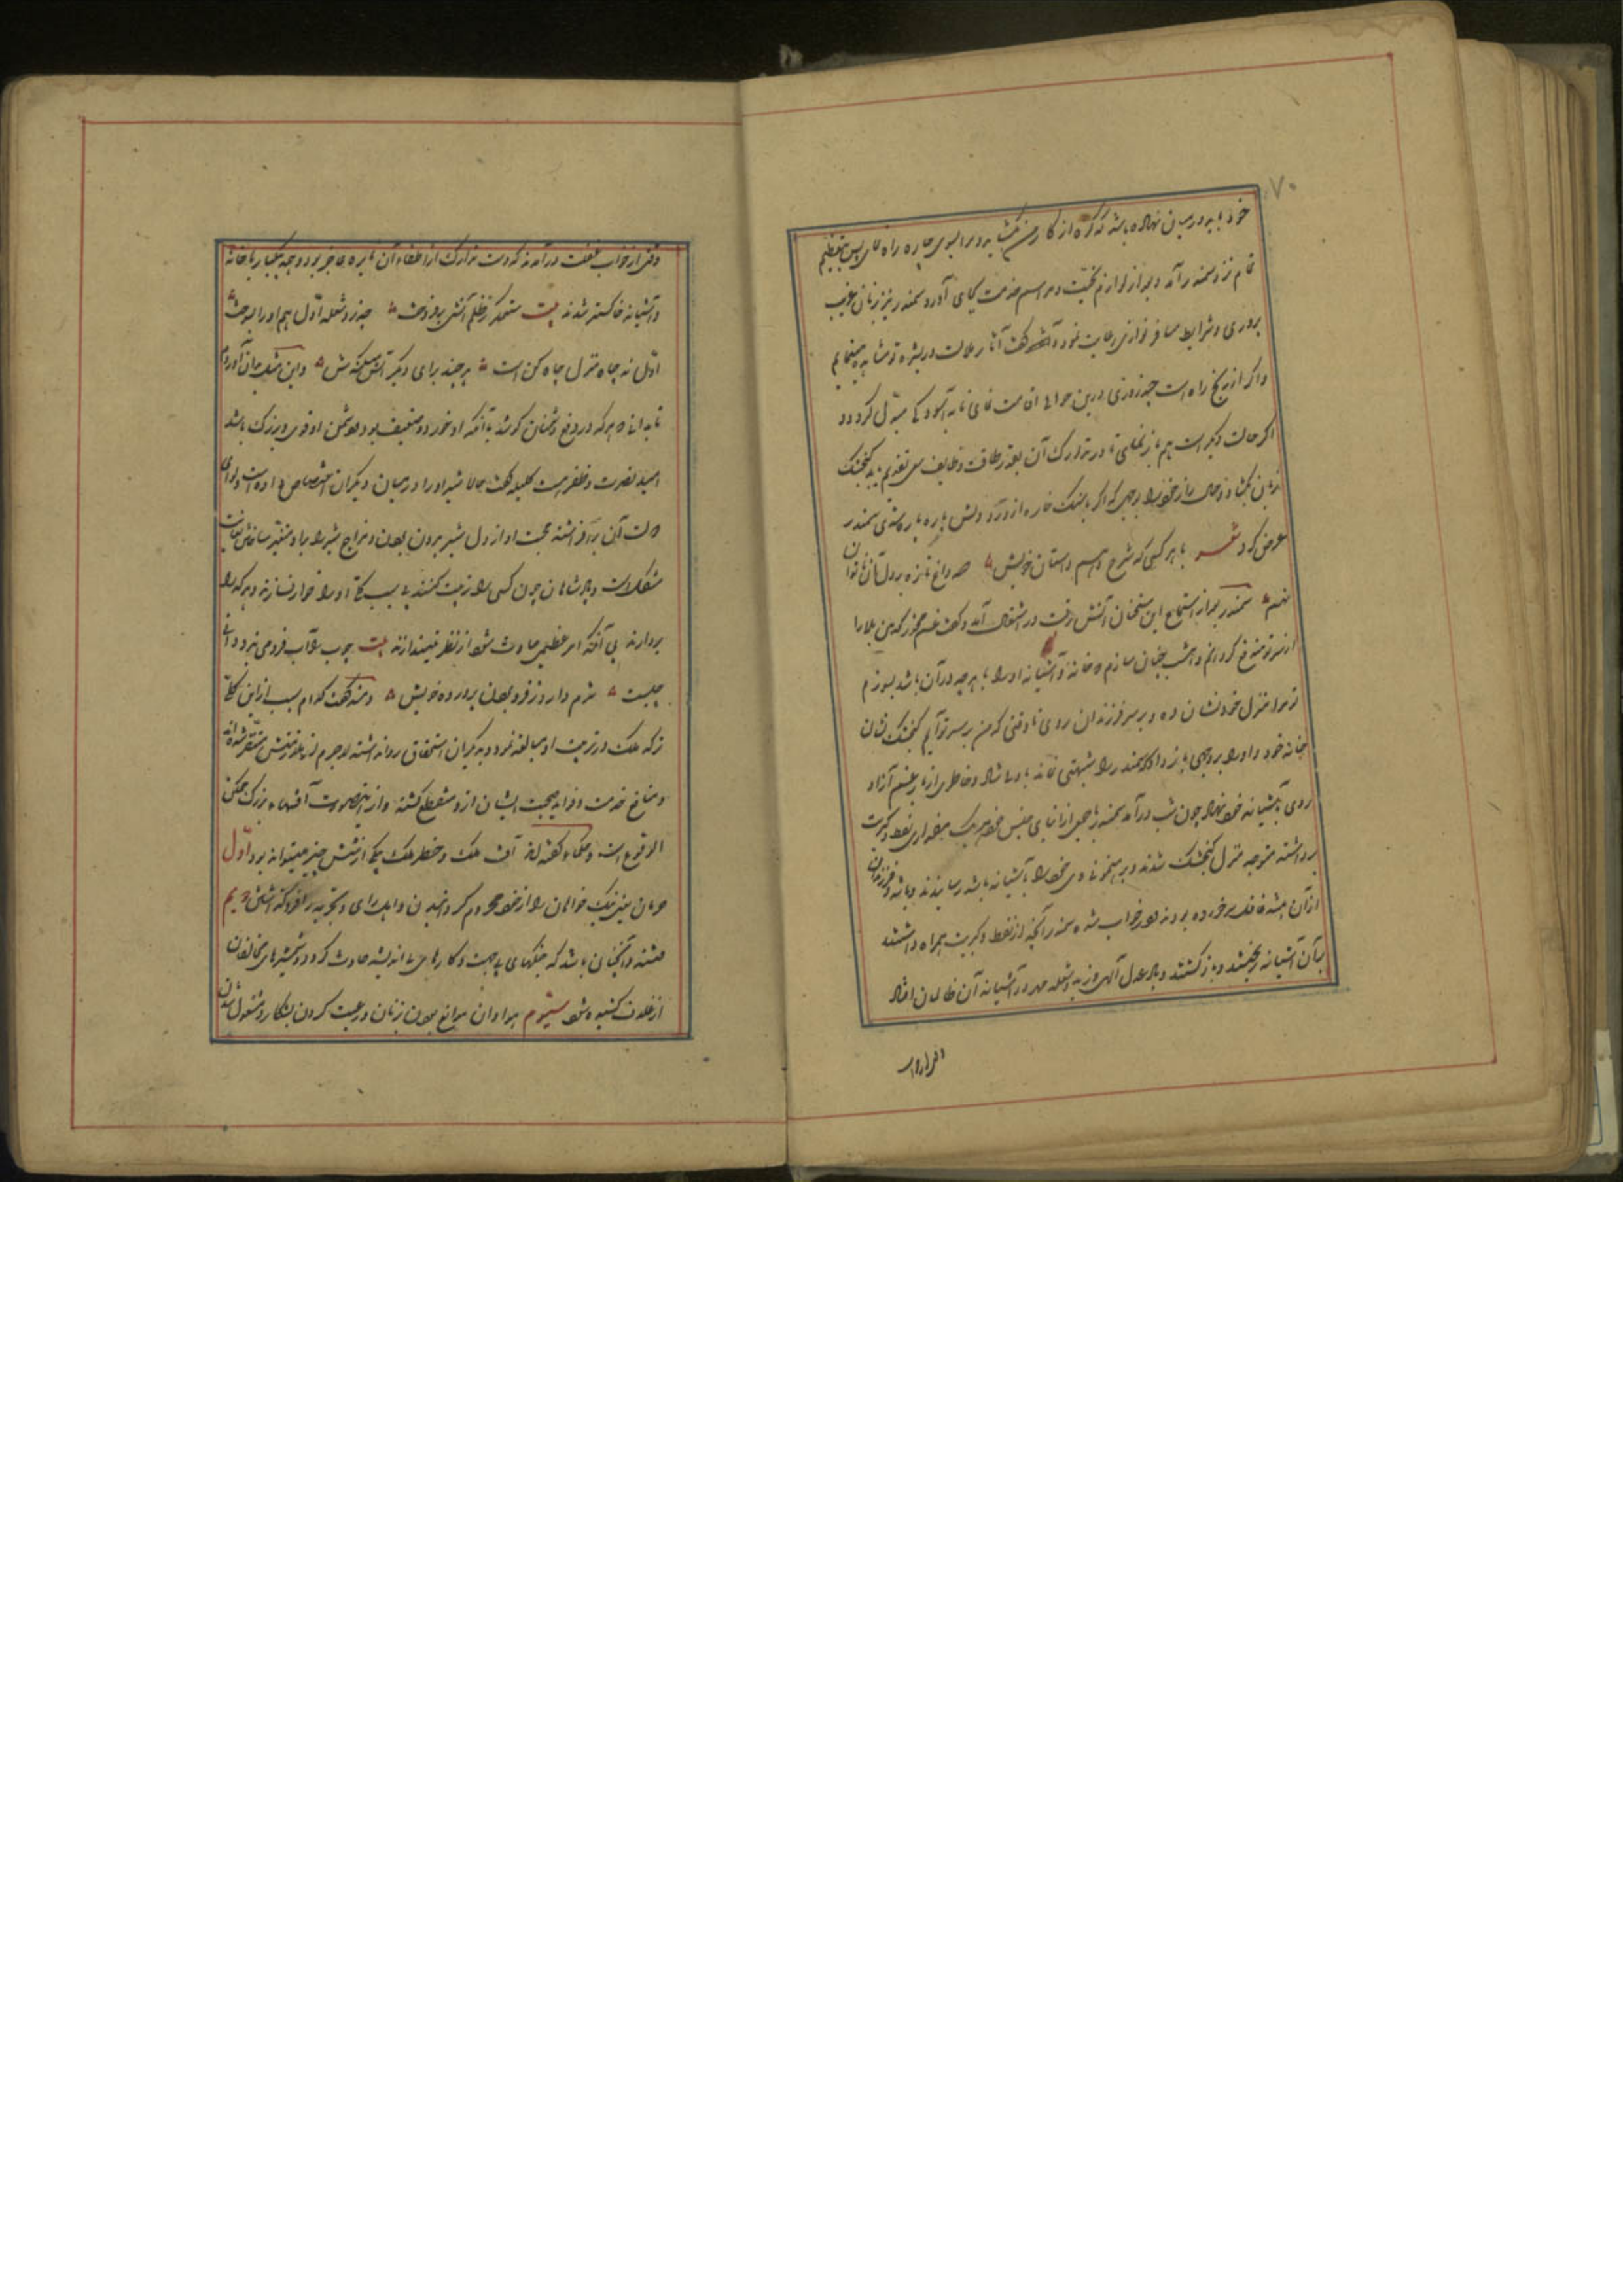 ۷۰
خود باید در میان نهاده باشد که گره از کار من بگشاید و مرا بسوی چاره راه نماید پس بتعظیم
تمام نزد سمندر آمد و بعد از لوازم تحیت و مراسم خدمت بجای آورد سمندر نیز زبان غریب
پروری و شرایط مسافر نوازی رعایت نموده گفت آثار ملالت در بشره تو مشاهده مینمایم
و اگر از رنج راه است چند روزی درین حوالی اقامت نمای تا به آسودگی مبدل گردد و
اگر حالت دیگر است هم باز نمای تا در تدارک آن بقدر طاقت وظایف سعی تقدیم یابد گنجشک
زبان بگشاد و حال زار خود را بوجهی که اگر با سنگ خاره از درد دلش پاره پاره شدی سمندر
عرض کرد شعر با هر کسی که شرح دهم داستان خویش صد داغ تازه بر دل آن ناتوان
نهم سمندر بعد از استماع این سخنان آتش رقت در اشتعال آمد و گفت غم مخور که من بلا را
از سر تو مندفع گردانم و امشب چنان سازم که خانه و آشیانه او را با هر چه در آن باشد بسوزم
تو مرا منزل خود نشان ده و بر سر فرزندان روی تا وقتی که من بر سر تو آیم گنجشک نشان
خانه خود داد او را بر وجهی باز داد که سمندر را شبهتی نماند با دل شاد و خاطری از بار غم آزاد
روی بآشیانه خود نهاد چون شب درآمد سمندر با جمعی از ابنای جنس خود هر یک مقداری نفط و کبریت
برداشته متوجه منزل گنجشک شدند و برهنمونی وی خود را بآشیانه باشه رسانیدند و باشه و فرزندان
از آن غافل سر خورده بودند و در خواب شده سمندر آنچه از نفط و کبریت همراه داشتند
بر آن آشیانه ریختند و باز گشتند و باد عدل الهی وزید شعله قهر در آشیانه آن ظالمان افتاد
وقتی از خواب غفلت درآمدند که دست تدارک از اطفاء آن نایره عاجز بود و جمله بیکبار با خانه
و آشیانه خاکستر شدند بیت ستمگر ز ظلم آتشی برفروخت چو زد شعله اول هم او را بسوخت
اول نه چاه منزل چاه کن است هر چند برای دیگر آتش میکندش و این مثل بدان آوردم
تا بدانی که هر که در دفع دشمنان کوشد با آنکه او خورد و ضعیف بود و دشمن او قوی و بزرگ باشد
امید نصرت و ظفر هست کلیله گفت حالا شیر او را در میان دیگران اختصاص داده است و لوای
دولت آن برافراشته محبت او از دل شیر بیرون بردن و مزاج شیر را برو متغیر ساختن بغایت
مشکل است و پادشاهان چون کسی را تربیت کنند بی سبب کلی او را خوار نسازند و هر که را
بردارند بی آنکه امر عظیم حادث شود از نظر نیندازند بیت چوب را آب فرو می نبرد دانی
چیست شرم دارد ز فرو بردن پرورده خویش دمنه گفت کدام سبب ازین کلی
تر که ملک در تربیت او مبالغه نمود و بدیگران استخفاف روا داشته لاجرم از ملازمتش متنفر شده اند
و منافع خدمت و فواید صحبت ایشان ازو منقطع گشته و ازین صورت آفتهای بزرگ ممکن
الوقوع است و حکما گفته اند آفت ملک و خطر ملک یکی از شش چیز میتواند بود اول
حرمان یعنی نیک خواهان را از خود محروم گردانیدن و اهل رای و تجربه را فرو گذاشتن دویم
فتنه و آنچنان باشد که جنگهای بی جهت و کارهای نااندیشه حادث گردد و شمشیرهای مخالفان
از غلاف کشیده شود سیوم هوا و آن مولع بودن بزنان و رغبت کردن بشکار و مشغول شدن